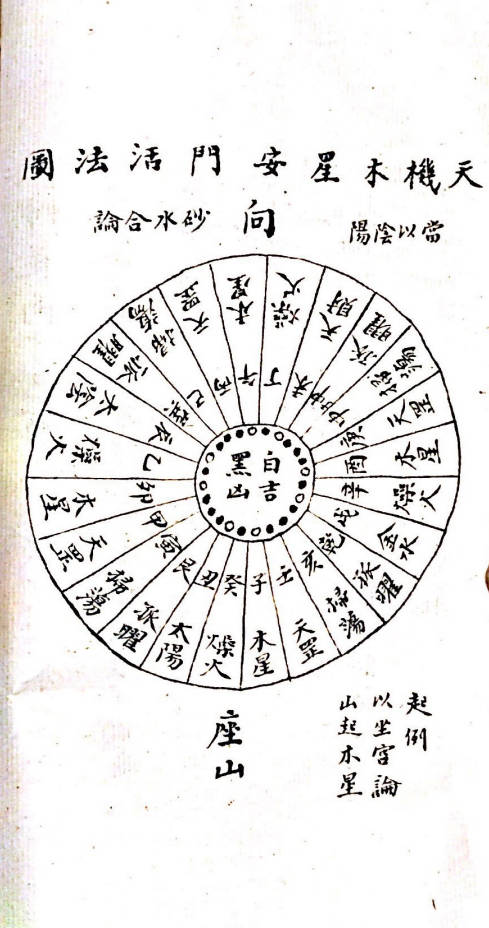 天機木星安門活法圖
當以陰陽
向
砂水合論
午 木星
丁 燥火
未 天財
坤 孤曜
申 掃蕩
庚 天罡
酉 木星
辛 燥火
戌 金水
乾 孤曜
亥 掃蕩
壬 天罡
子 木星
癸 燥火
丑 太陽
艮 孤曜
寅 掃蕩
甲 天罡
卯 木星
乙 燥火
辰 太陰
巽 孤曜
巳 掃蕩
丙 天罡
白吉
黑凶
起例
以坐宮論
山起木星
座山